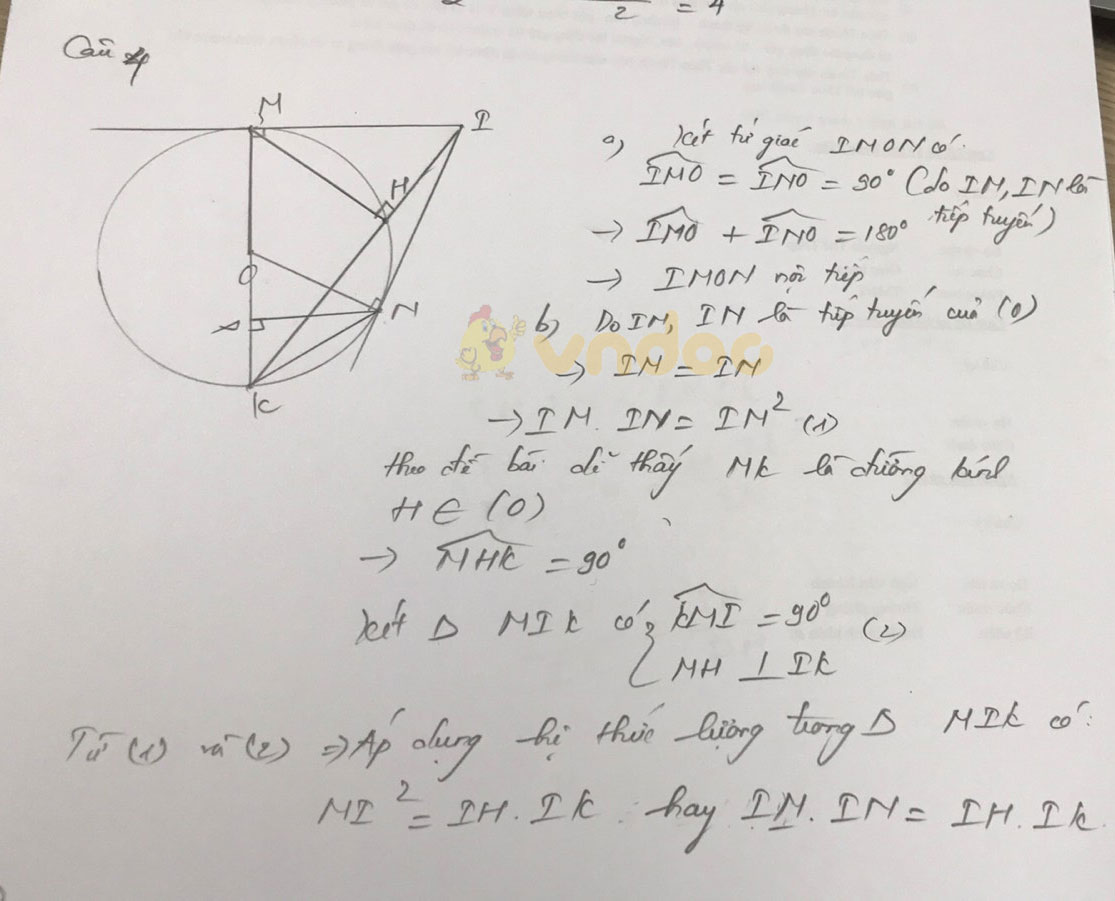 2 = 4
Câu 4
M
I
H
O
N
K
a) Xét tứ giác IMON có:
IMO = INO = 90° (do IM, IN là
tiếp tuyến)
→ IMO + INO = 180°
→ IMON nội tiếp
b) Do IM, IN là tiếp tuyến của (O)
vndoc
→ IM = IN
→ IM. IN = IM² (1)
theo đề bài dễ thấy MK là đường kính
H ∈ (O)
→ MHK = 90°
Xét Δ MIK có { KMI = 90° (2)
MH ⊥ IK
Từ (1) và (2) ⇒ Áp dụng hệ thức lượng trong Δ MIK có:
MI² = IH. IK hay IM. IN = IH. IK